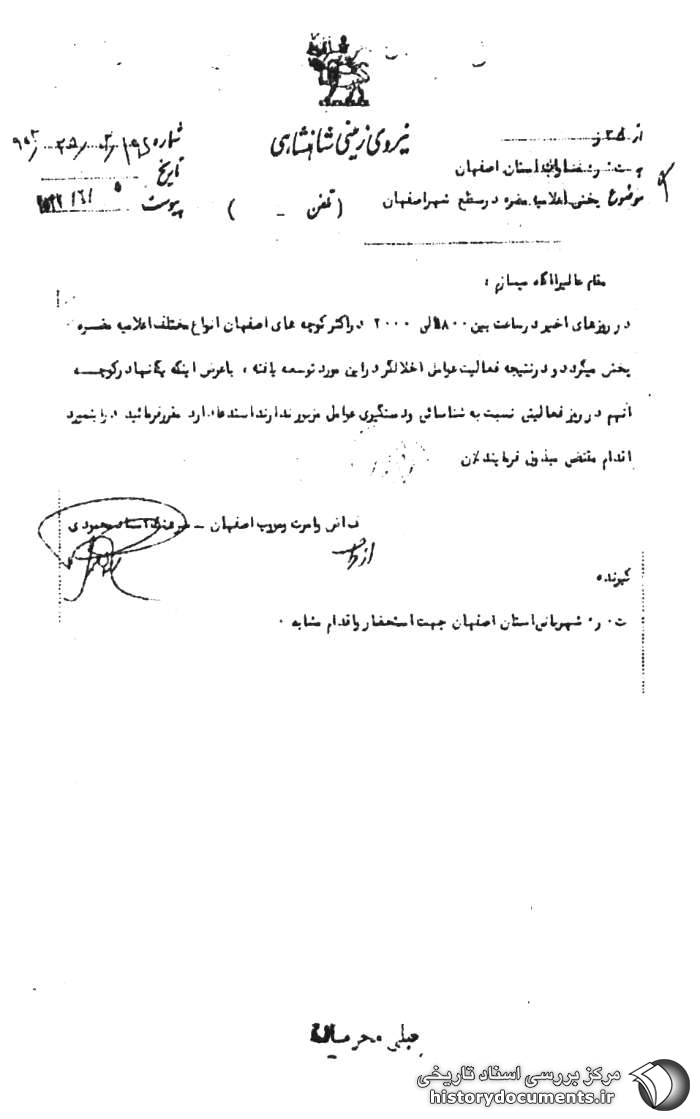 نیروی زمینی شاهنشاهی
از ۲۵ ز
به ت. ر. ساواک استان اصفهان
موضوع پخش اعلامیه مضره در سطح شهر اصفهان
(تلفن - )
شماره
تاریخ
پیوست
مقام عالی را آگاه میسازم :
در روزهای اخیر در ساعت بین ۱۸۰۰ الی ۲۰۰۰ در اکثر کوچه های اصفهان انواع مختلف اعلامیه مضره
پخش میگردد و در نتیجه فعالیت عوامل اخلالگر در این مورد توسعه یافته ، با عرض اینکه یگانها در کوچه
آنهم در روز فعالیتی نسبت به شناسائی و دستگیری عوامل مزبور ندارند استدعا دارد مقرر فرمائید در اینمورد
اقدام مقتضی مبذول فرمایند
اصفهان -
از طرف
گیرنده
ت. ر. شهربانی استان اصفهان جهت استحضار و اقدام مشابه .
خیلی محرمانه
مرکز بررسی اسناد تاریخی
historydocuments.ir